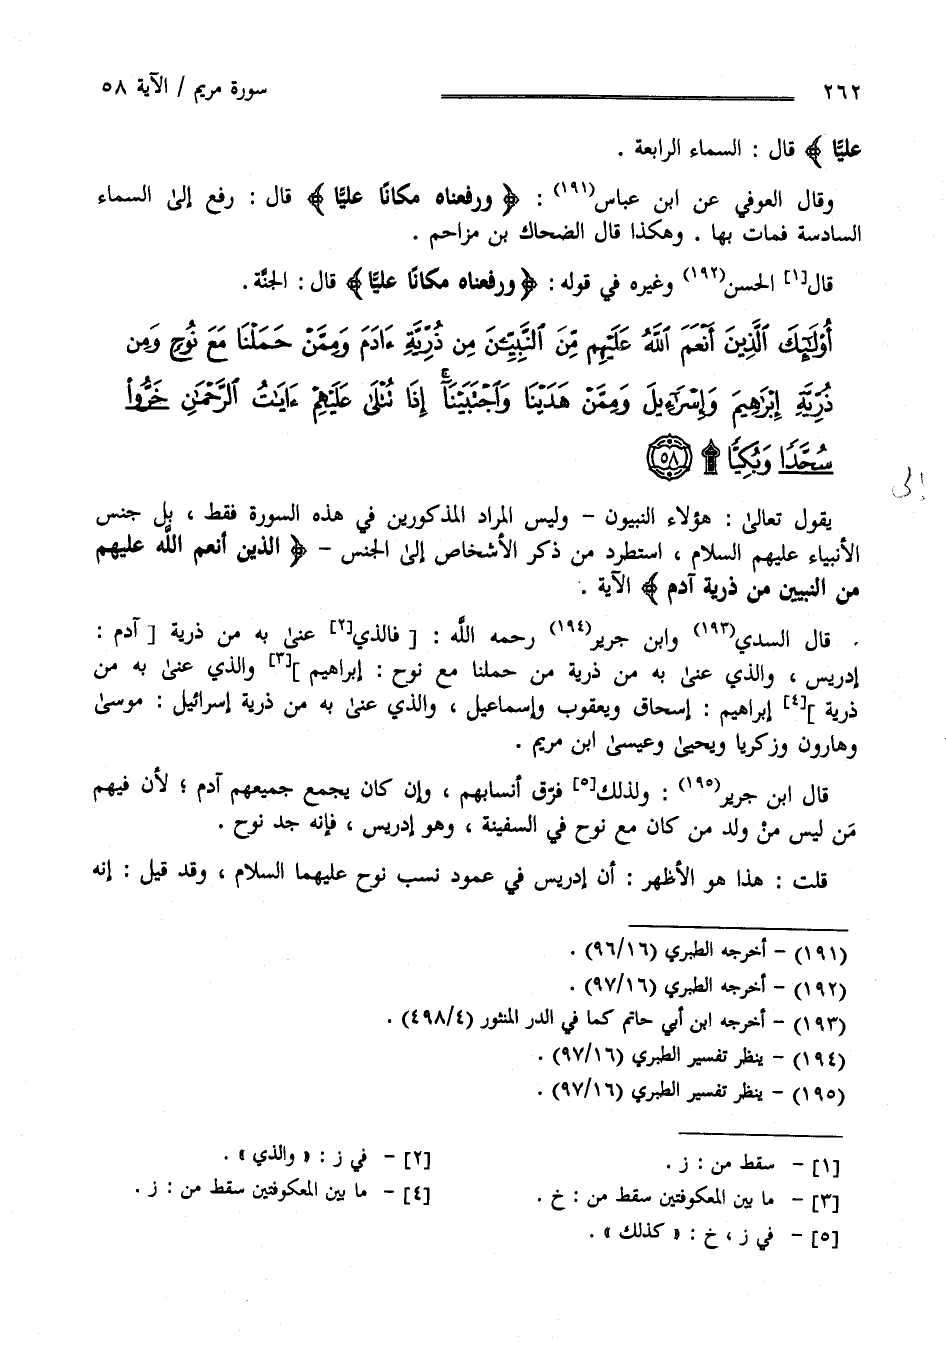 ٢٦٢ سورة مريم / الآية ٥٨
عليًا ﴾ قال : السماء الرابعة .
وقال العوفي عن ابن عباس(١٩١) : ﴿ ورفعناه مكانًا عليًا ﴾ قال : رفع إلىٰ السماء
السادسة فمات بها . وهكذا قال الضحاك بن مزاحم .
قال[١] الحسن(١٩٢) وغيره في قوله : ﴿ ورفعناه مكانًا عليًا ﴾ قال : الجنَّة .
أُوْلَٰٓئِكَ ٱلَّذِينَ أَنْعَمَ ٱللَّهُ عَلَيْهِم مِّنَ ٱلنَّبِيِّـۧنَ مِن ذُرِّيَّةِ ءَادَمَ وَمِمَّنْ حَمَلْنَا مَعَ نُوحٍ وَمِن
ذُرِّيَّةِ إِبْرَٰهِيمَ وَإِسْرَٰٓءِيلَ وَمِمَّنْ هَدَيْنَا وَٱجْتَبَيْنَآ ۚ إِذَا تُتْلَىٰ عَلَيْهِمْ ءَايَٰتُ ٱلرَّحْمَٰنِ خَرُّوا۟
سُجَّدًا وَبُكِيًّا ۩ ٥٨
إلى
يقول تعالىٰ : هؤلاء النبيون – وليس المراد المذكورين في هذه السورة فقط ، بل جنس
الأنبياء عليهم السلام ، استطرد من ذكر الأشخاص إلىٰ الجنس – ﴿ الذين أنعم اللَّه عليهم
من النبيين من ذرية آدم ﴾ الآية .
قال السدي(١٩٣) وابن جرير(١٩٤) رحمه اللَّه : [ فالذي[٢] عنىٰ به من ذرية [ آدم :
إدريس ، والذي عنىٰ به من ذرية من حملنا مع نوح : إبراهيم ][٣] والذي عنىٰ به من
ذرية ][٤] إبراهيم : إسحاق ويعقوب وإسماعيل ، والذي عنىٰ به من ذرية إسرائيل : موسىٰ
وهارون وزكريا ويحيىٰ وعيسىٰ ابن مريم .
قال ابن جرير(١٩٥) : ولذلك[٥] فرّق أنسابهم ، وإن كان يجمع جميعهم آدم ؛ لأن فيهم
مَن ليس مِنْ ولد من كان مع نوح في السفينة ، وهو إدريس ، فإنه جد نوح .
قلت : هذا هو الأظهر : أن إدريس في عمود نسب نوح عليهما السلام ، وقد قيل : إنه
(١٩١) – أخرجه الطبري (٩٦/١٦) .
(١٩٢) – أخرجه الطبري (٩٧/١٦) .
(١٩٣) – أخرجه ابن أبي حاتم كما في الدر المنثور (٤٩٨/٤) .
(١٩٤) – ينظر تفسير الطبري (٩٧/١٦) .
(١٩٥) – ينظر تفسير الطبري (٩٧/١٦) .
[١] – سقط من : ز . [٢] – في ز : « والذي » .
[٣] – ما بين المعكوفتين سقط من : خ . [٤] – ما بين المعكوفتين سقط من : ز .
[٥] – في ز ، خ : « كذلك » .